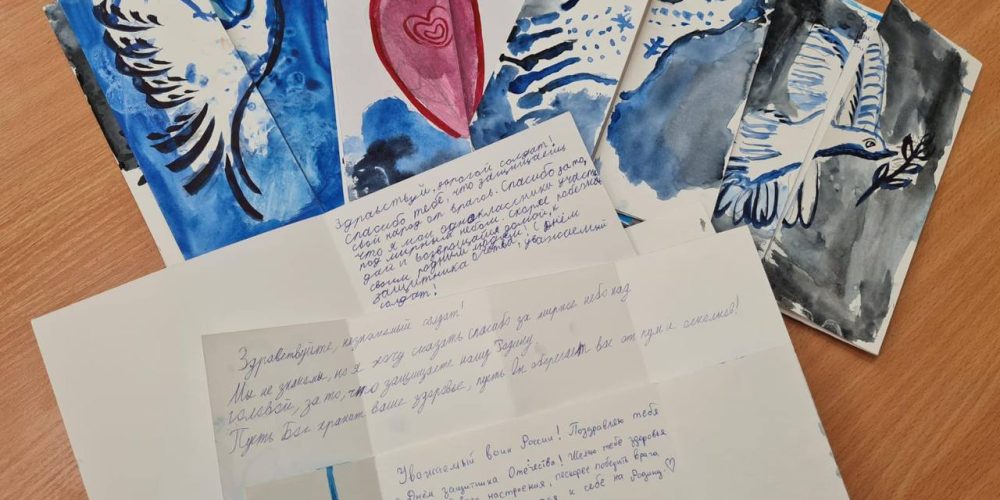 Здравствуй, дорогой солдат!
Спасибо тебе, что защищаешь
свой народ от врагов. Спасибо за то,
что я и мои одноклассники учатся
под мирным небом. Скорее
и возвращайся домой, к
своим родным людям! С днём
защитника Отечества, уважаемый
солдат!
Здравствуйте, незнакомый солдат!
Мы не знакомы, но я хочу сказать спасибо за мирное небо над
головой, за то, что защищаете нашу Родину.
Пусть Бог хранит ваше здоровье, пусть Он оберегает вас от пуль и осколков!
Уважаемый воин России! Поздравляю тебя
с Днём защитника Отечества! Желаю тебе здоровья
настроения, поскорее победить врага
к себе на Родину ♡